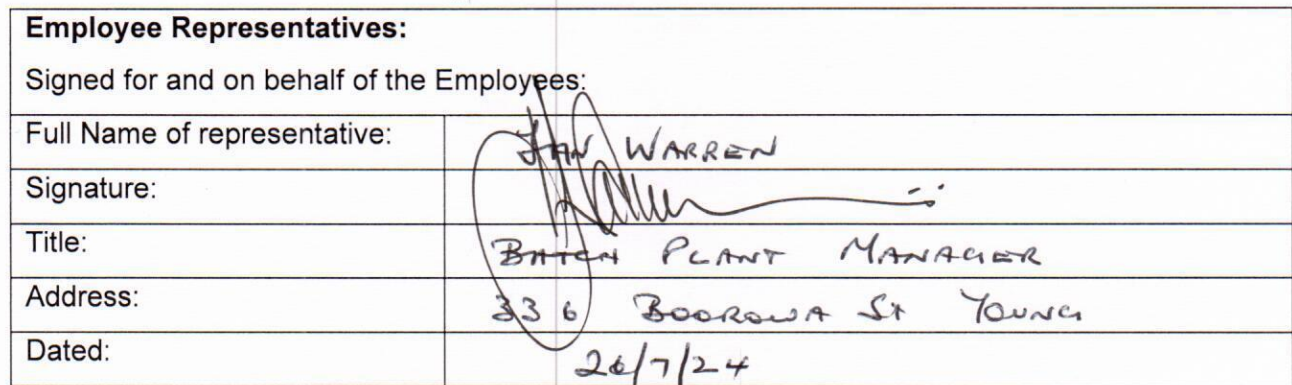 Employee Representatives:
Signed for and on behalf of the Employees:
Full Name of representative: WARREN
Signature:
Title: BATCH PLANT MANAGER
Address: 336 BOOROWA ST YOUNG
Dated: 26/7/24